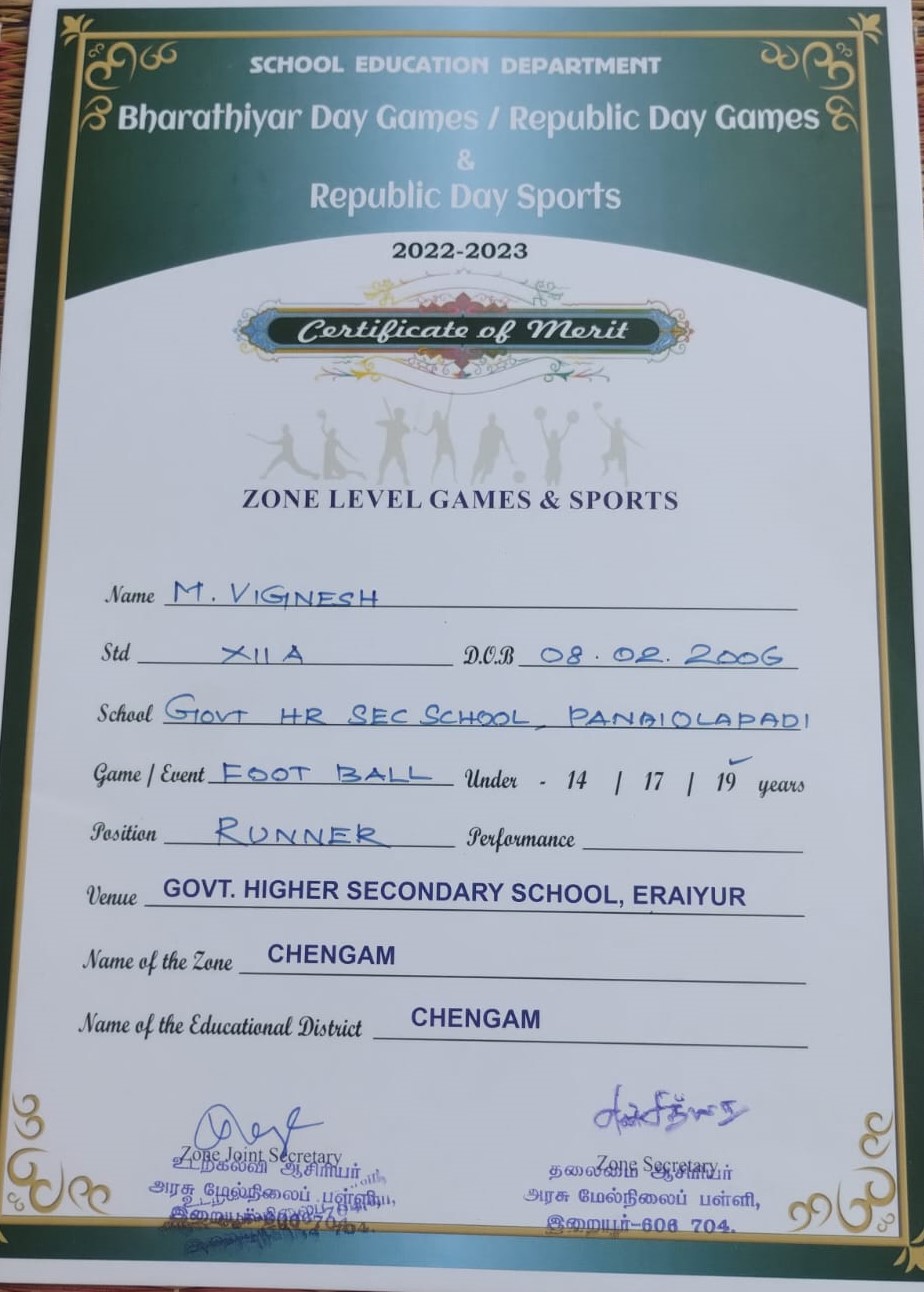 SCHOOL EDUCATION DEPARTMENT
Bharathiyar Day Games / Republic Day Games
&
Republic Day Sports
2022-2023
Certificate of Merit
ZONE LEVEL GAMES & SPORTS
Name M. VIGNESH
Std XII A D.O.B 08.02.2006
School GOVT HR SEC SCHOOL, PANAIOLAPADI
Game / Event FOOT BALL Under - 14 | 17 | 19 years
Position RUNNER Performance
Venue GOVT. HIGHER SECONDARY SCHOOL, ERAIYUR
Name of the Zone CHENGAM
Name of the Educational District CHENGAM
Zone Joint Secretary
உடற்கல்வி ஆசிரியர்
அரசு மேல்நிலைப் பள்ளி,
Zone Secretary
தலைமை ஆசிரியர்
அரசு மேல்நிலைப் பள்ளி,
இறையூர்-606 704.